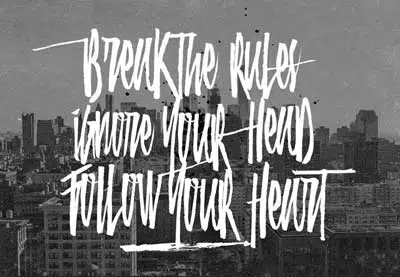 Break the Rules
ignore Your Head
Follow Your Heart